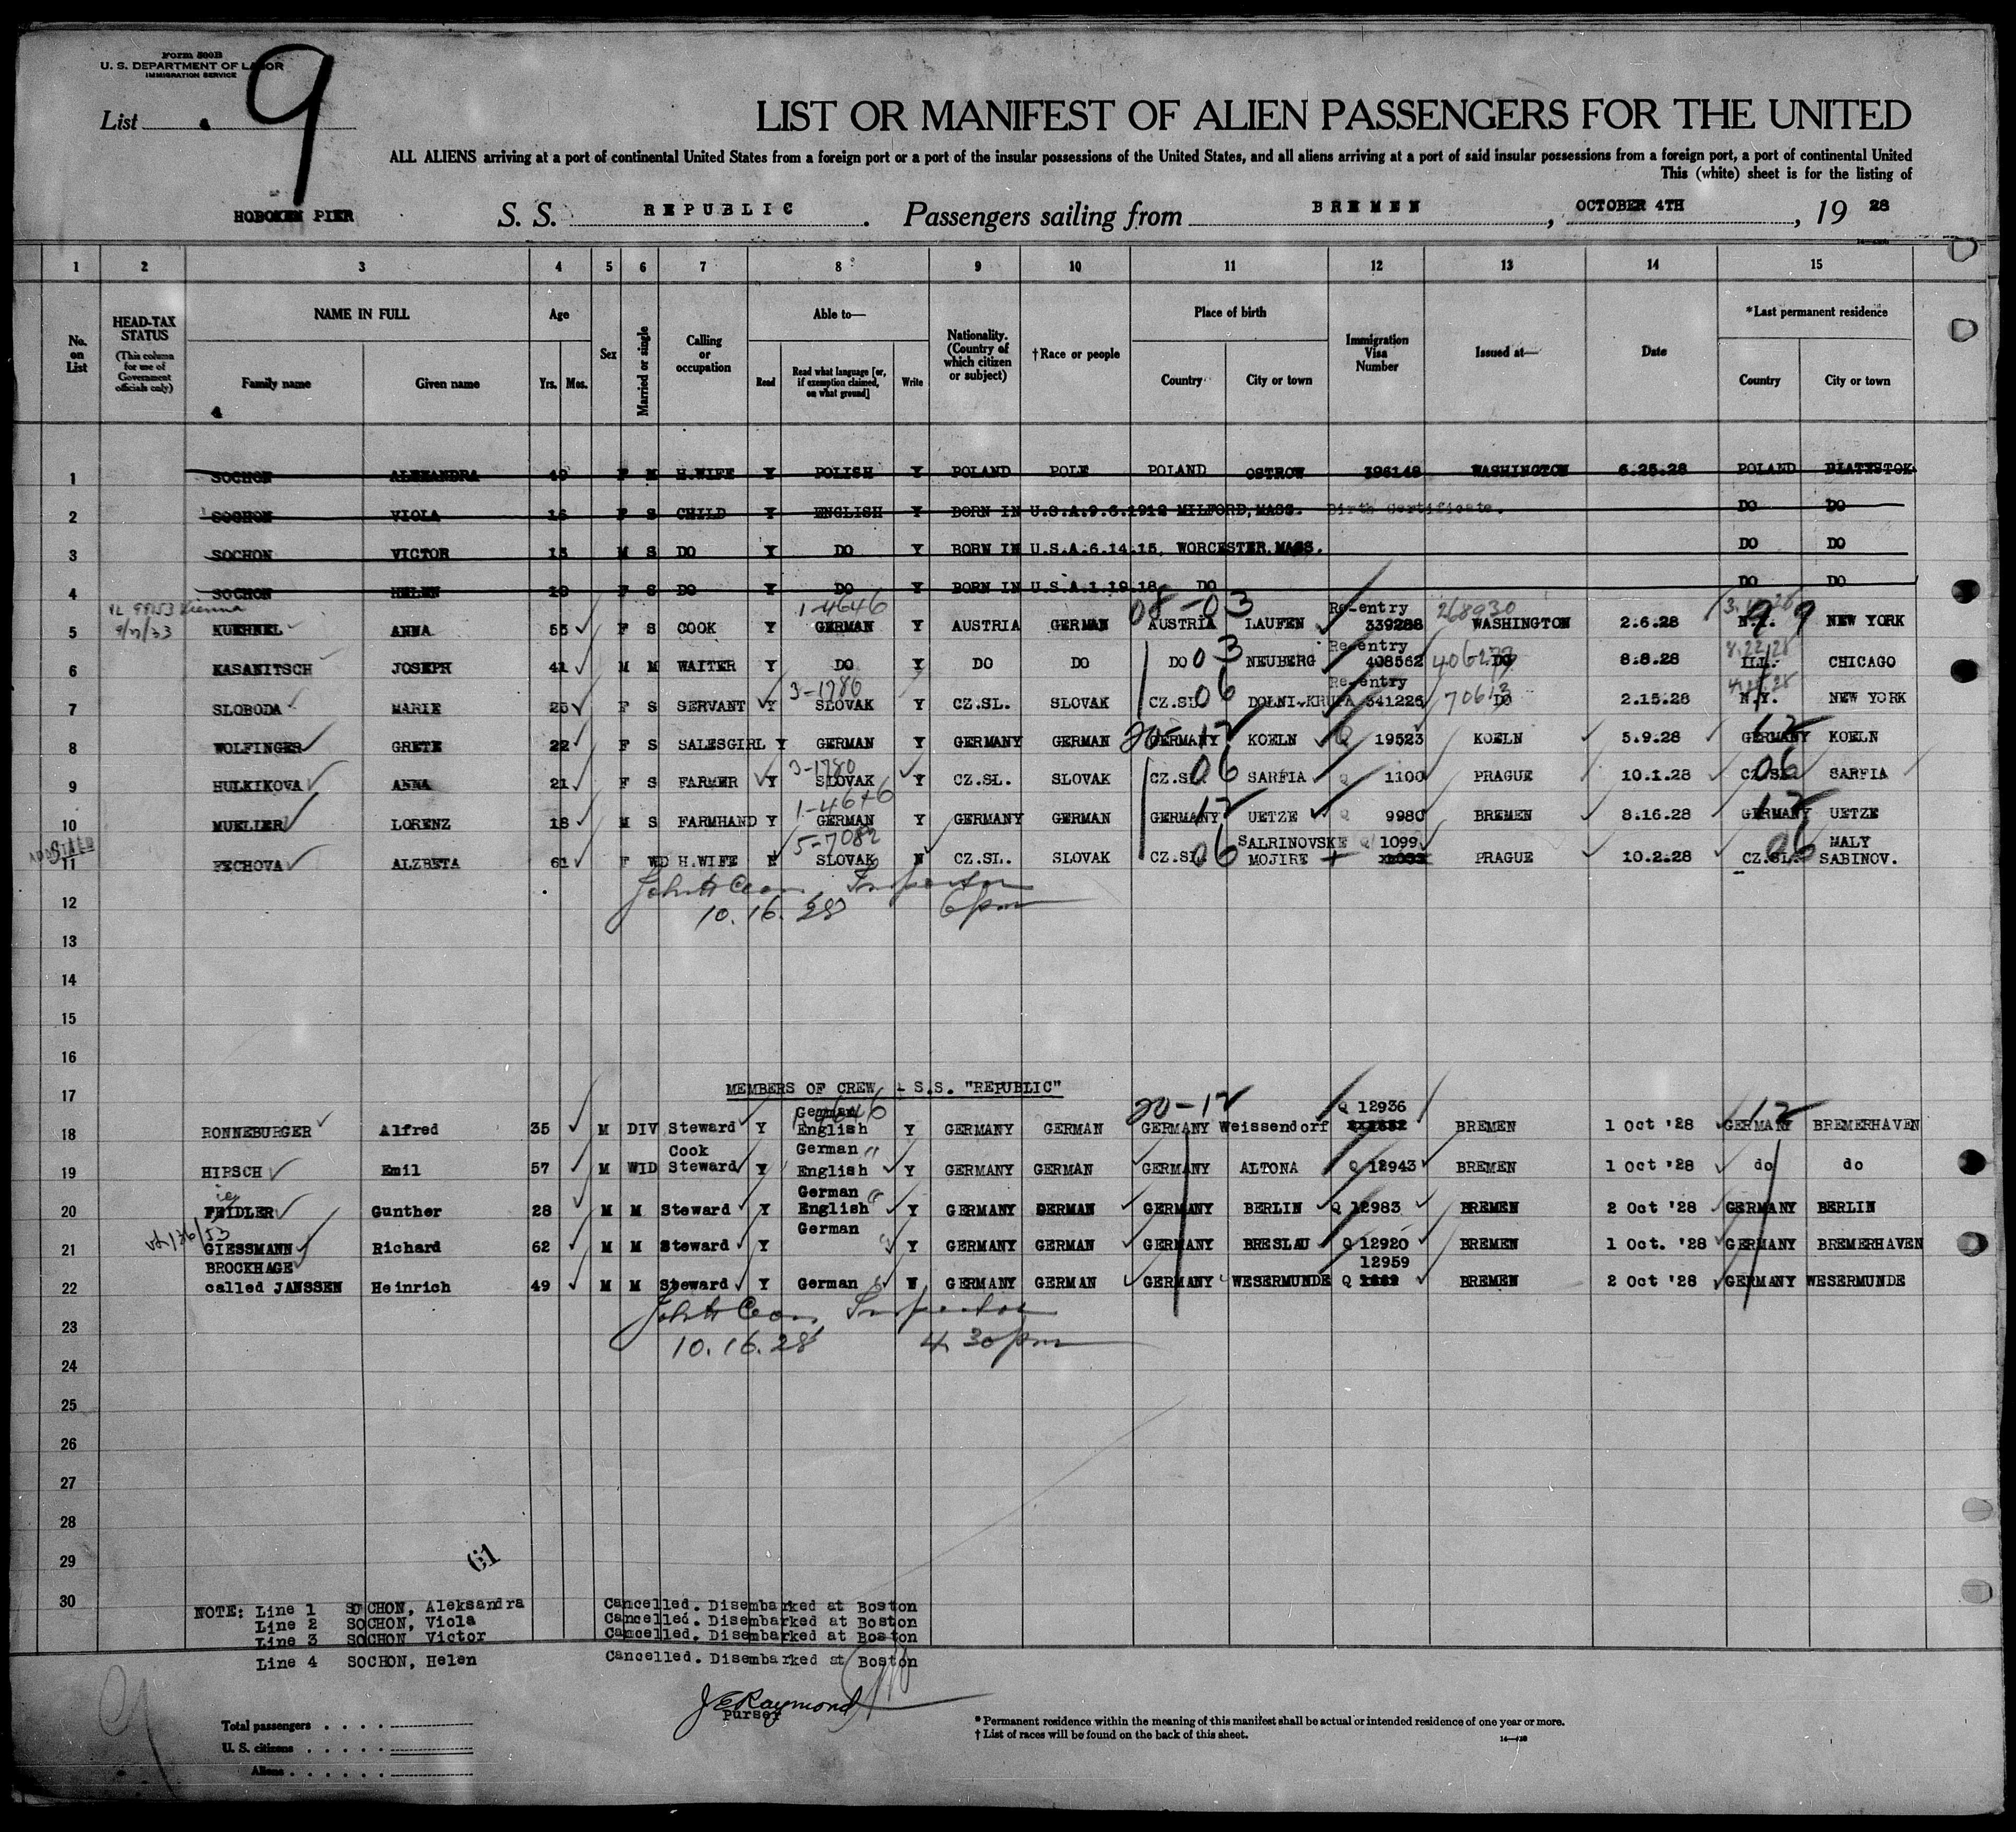 Form 500B
U. S. DEPARTMENT OF LABOR
IMMIGRATION SERVICE
List 9
LIST OR MANIFEST OF ALIEN PASSENGERS FOR THE UNITED
ALL ALIENS arriving at a port of continental United States from a foreign port or a port of the insular possessions of the United States, and all aliens arriving at a port of said insular possessions from a foreign port, a port of continental United
This (white) sheet is for the listing of
HOBOKEN PIER S. S. REPUBLIC . Passengers sailing from BREMEN , OCTOBER 4TH , 19 28
1 2 3 4 5 6 7 8 9 10 11 12 13 14 15
No. on List HEAD-TAX STATUS (This column for use of Government officials only) NAME IN FULL Family name Given name Age Yrs. Mos. Sex Married or single Calling or occupation Able to— Read Read what language [or, if exemption claimed, on what ground] Write Nationality. (Country of which citizen or subject) †Race or people Place of birth Country City or town Immigration Visa Number Issued at— Date *Last permanent residence Country City or town
1 SOCHON ALEXANDRA 49 F M H.WIFE Y POLISH Y POLAND POLE POLAND OSTROW 396148 WASHINGTON 6.25.28 POLAND BIATYSTOK
2 SOCHON VIOLA 16 F S CHILD Y ENGLISH Y BORN IN U.S.A.9.6.1912 MILFORD,MASS. Birth Certificate. DO DO
3 SOCHON VICTOR 13 M S DO Y DO Y BORN IN U.S.A.6.14.15, WORCESTER.MASS. DO DO
4 SOCHON HELEN 10 F S DO Y DO Y BORN IN U.S.A.1.19.18. DO DO DO
99153 Vienna 1-4646 08-03 Re-entry 268930
5 9/27/33 KUEHNEL ANNA 55 F S COOK Y GERMAN Y AUSTRIA GERMAN AUSTRIA LAUFEN 339288 WASHINGTON 2.6.28 N.Y. 99 NEW YORK
03 Re-entry 8.22.28
6 KASANITSCH JOSEPH 41 M M WAITER Y DO Y DO DO DO NEUBERG 408562 DO 8.8.28 ILL. CHICAGO
3-1780 06 Re-entry
7 SLOBODA MARIE 25 F S SERVANT Y SLOVAK Y CZ.SL. SLOVAK CZ.SL. DOLNI-KRUPA 341226 70613 DO 2.15.28 N.Y. NEW YORK
20-12 12
8 WOLFINGER GRETE 22 F S SALESGIRL Y GERMAN Y GERMANY GERMAN GERMANY KOELN Q 19523 KOELN 5.9.28 GERMANY KOELN
3-1780 06 06
9 HULKIKOVA ANNA 21 F S FARMER Y SLOVAK Y CZ.SL. SLOVAK CZ.SL. SARFIA Q 1100 PRAGUE 10.1.28 CZ.SL. SARFIA
1-4646 12 12
10 MUELLER LORENZ 18 M S FARMHAND Y GERMAN Y GERMANY GERMAN GERMANY UETZE Q 9980 BREMEN 8.16.28 GERMANY UETZE
5-7082 06 SALRINOVSKE Q 1099 06 MALY
11 PECHOVA ALZBETA 61 F WD H.WIFE N SLOVAK N CZ.SL. SLOVAK CZ.SL. MOJIRE PRAGUE 10.2.28 CZ.SL. SABINOV.
Inspector
12 10.16.28 6 pm
13
14
15
16
17 MEMBERS OF CREW - S.S. "REPUBLIC"
German 1-4646 20-12 Q 12936 12
18 RONNEBURGER Alfred 35 M DIV Steward Y English Y GERMANY GERMAN GERMANY Weissendorf BREMEN 1 Oct '28 GERMANY BREMERHAVEN
Cook German "
19 HIRSCH Emil 57 M WID Steward Y English Y GERMANY GERMAN GERMANY ALTONA Q 12943 BREMEN 1 Oct '28 do do
ie German
20 FEIDLER Gunther 28 M M Steward Y English Y GERMANY GERMAN GERMANY BERLIN Q 12983 BREMEN 2 Oct '28 GERMANY BERLIN
German
21 GIESSMANN Richard 62 M M Steward Y Y GERMANY GERMAN GERMANY BRESLAU Q 12920 BREMEN 1 Oct. '28 GERMANY BREMERHAVEN
BROCKHAGE 12959
22 called JANSSEN Heinrich 49 M M Steward Y German Y GERMANY GERMAN GERMANY WESERMUNDE Q BREMEN 2 Oct '28 GERMANY WESERMUNDE
23 Inspector
10.16.28 4.30pm
24
25
26
27
28
29 61
30
NOTE: Line 1 SOCHON, Aleksandra Cancelled. Disembarked at Boston
Line 2 SOCHON, Viola Cancelled. Disembarked at Boston
Line 3 SOCHON Victor Cancelled. Disembarked at Boston
Line 4 SOCHON, Helen Cancelled. Disembarked at Boston
J E Raymond
Purser
Total passengers . . . .
U. S. citizens . . . . .
Aliens . . . . . .
* Permanent residence within the meaning of this manifest shall be actual or intended residence of one year or more.
† List of races will be found on the back of this sheet.